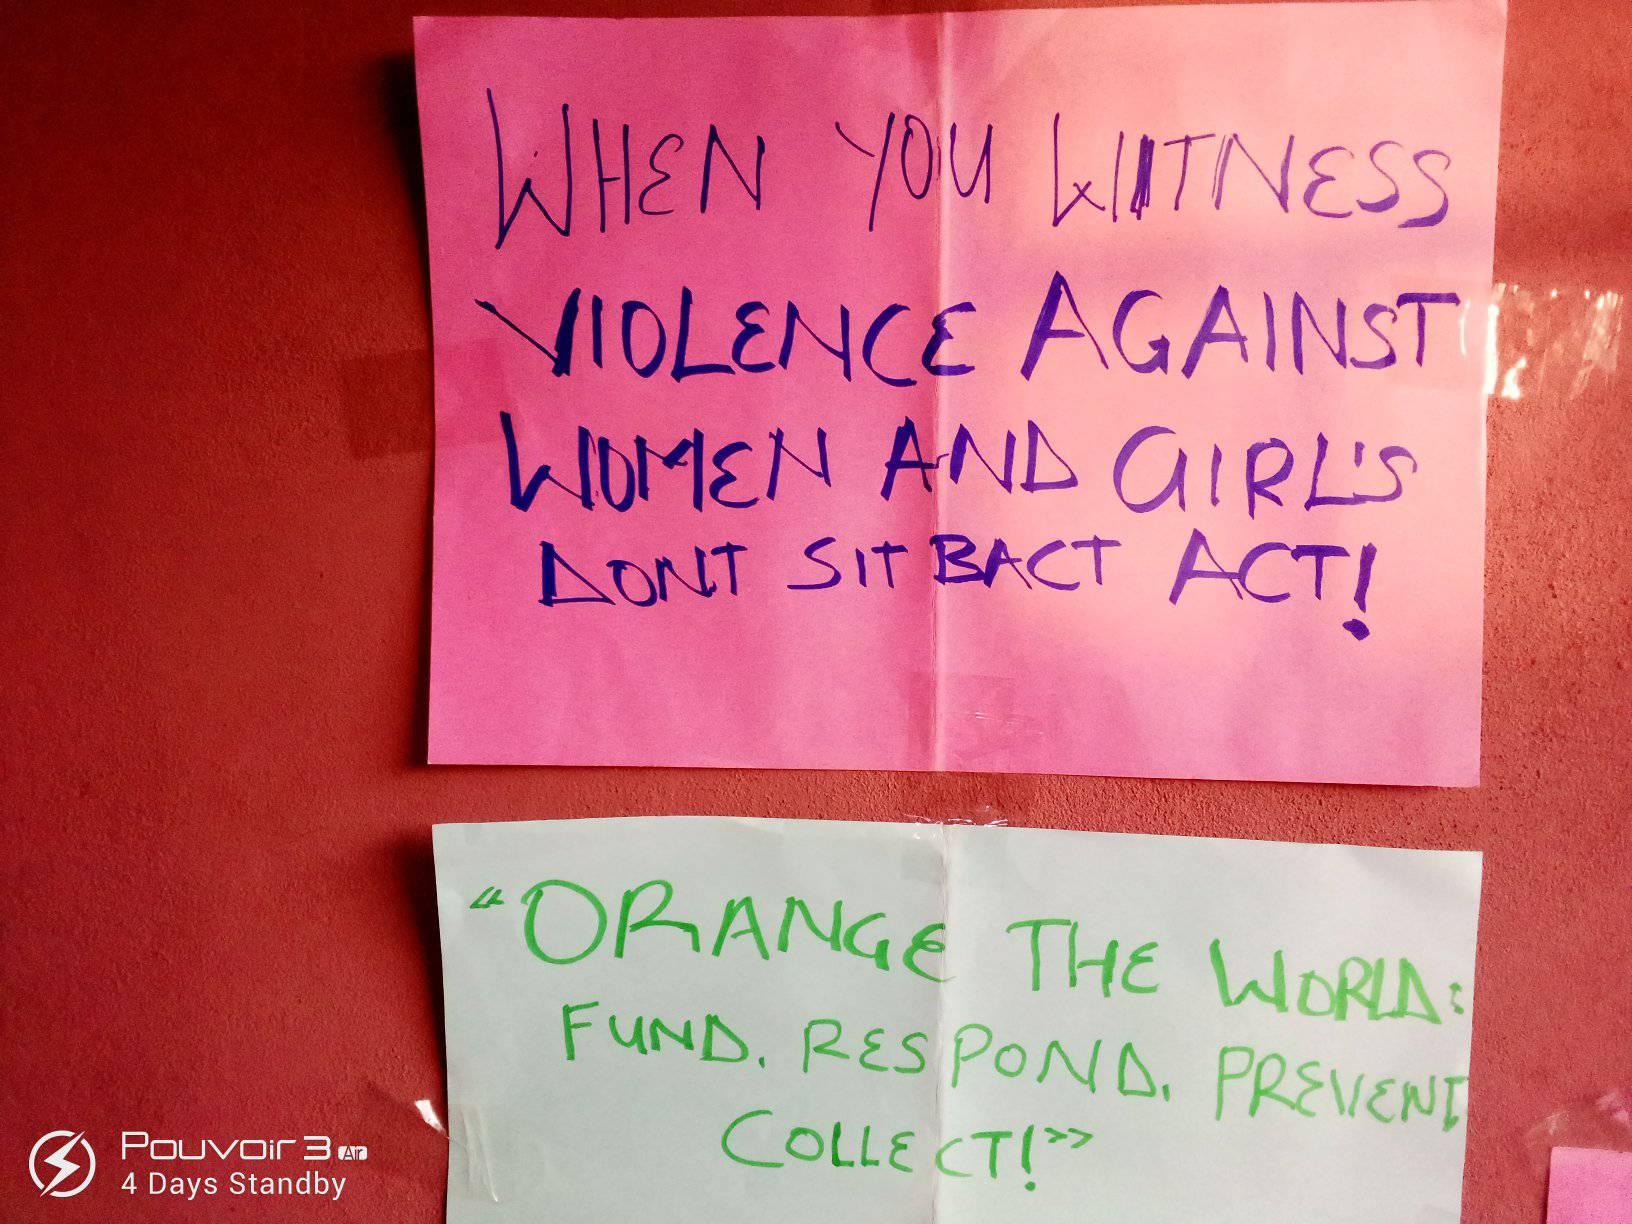 WHEN YOU WITNESS
VIOLENCE AGAINST
WOMEN AND GIRL'S
DONT SIT BACT ACT!
"ORANGE THE WORLD:
FUND. RESPOND. PREVENT
COLLECT!"
Pouvoir 3 Air
4 Days Standby